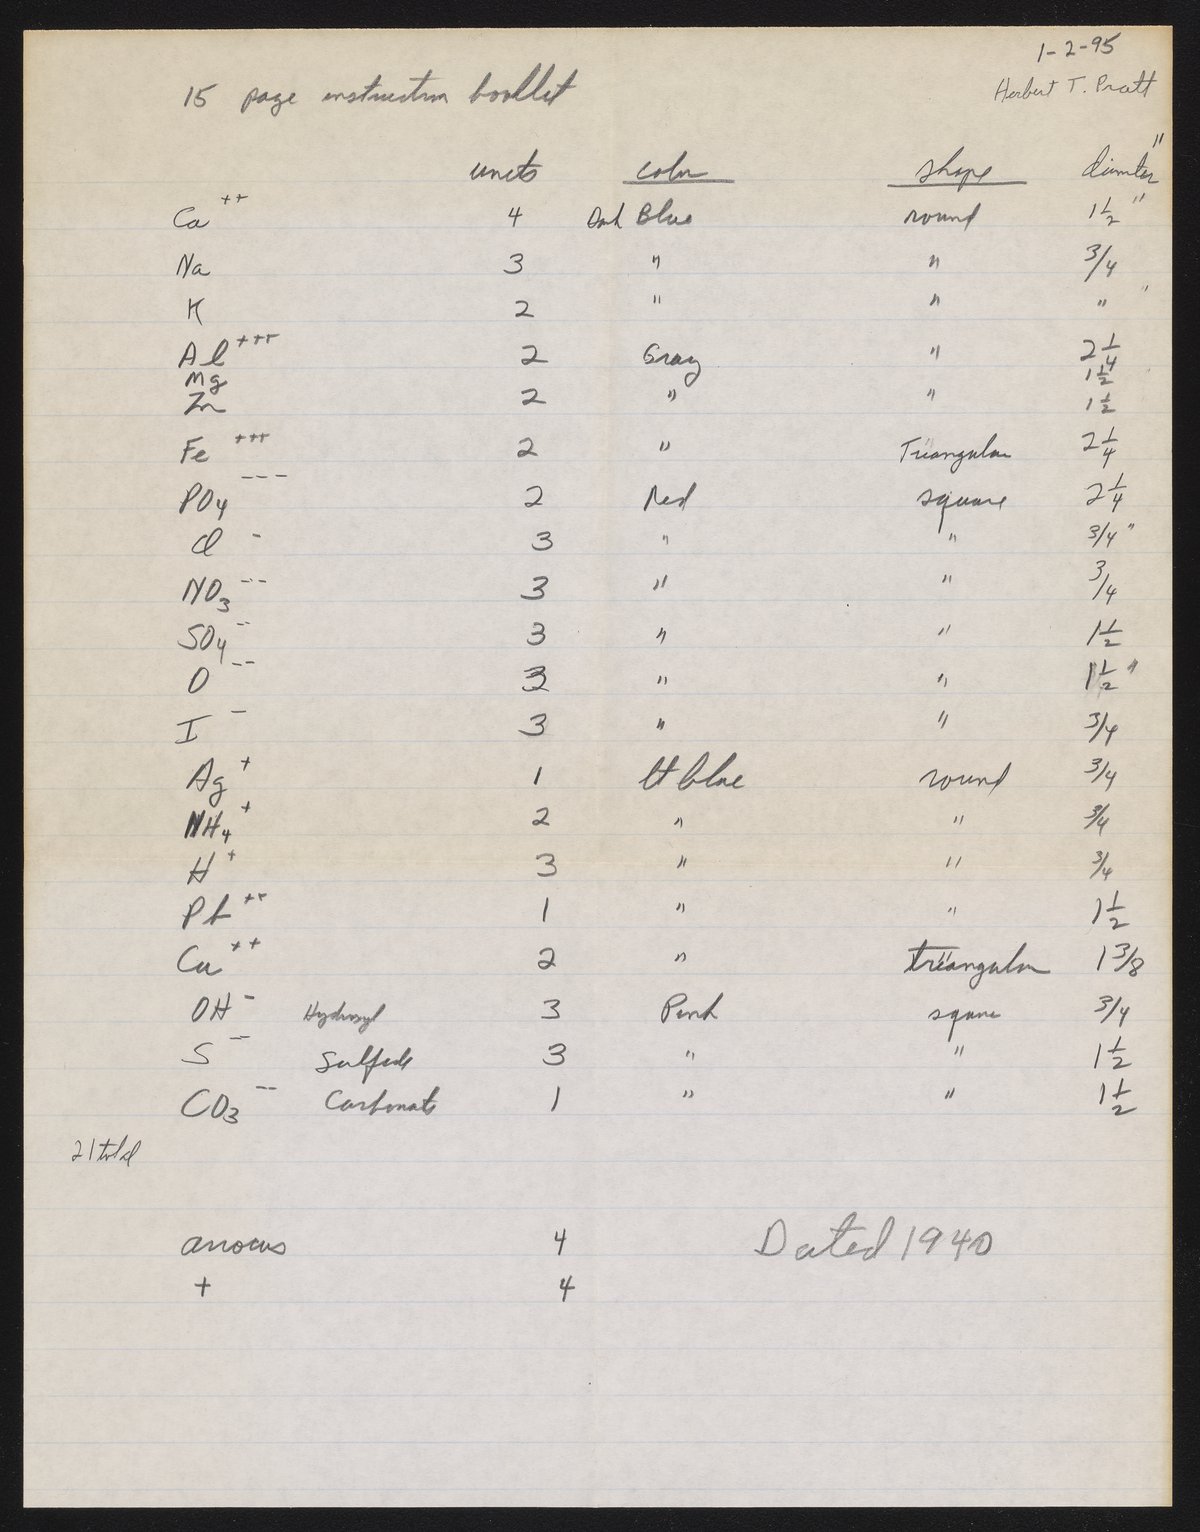 1-2-95
Herbert T. Pratt
15 page instruction booklet
units color shape diamter "
Ca ++ 4 Dark Blue round 1 1/2 "
Na 3 " " 3/4
K 2 " " " "
Al +++ 2 Gray " 2 1/4
Mg 1 1/2
Zn 2 " " 1 1/2
Fe +++ 2 " Triangular 2 1/4
PO4 --- 2 Red square 2 1/4
Cl - 3 " " 3/4 "
NO3 --- 3 " " 3/4
SO4 -- 3 " " 1 1/2
O -- 3 " " 1 1/2 "
I - 3 " " 3/4
Ag + 1 lt blue round 3/4
NH4 + 2 " " 3/4
H + 3 " " 3/4
Pb ++ 1 " " 1 1/2
Cu ++ 2 " triangular 1 3/8
OH - Hydroxyl 3 Pink square 3/4
S - Sulfide 3 " " 1 1/2
CO3 -- Carbonate 1 " " 1 1/2
21 total
arrows 4 Dated 1940
+ 4